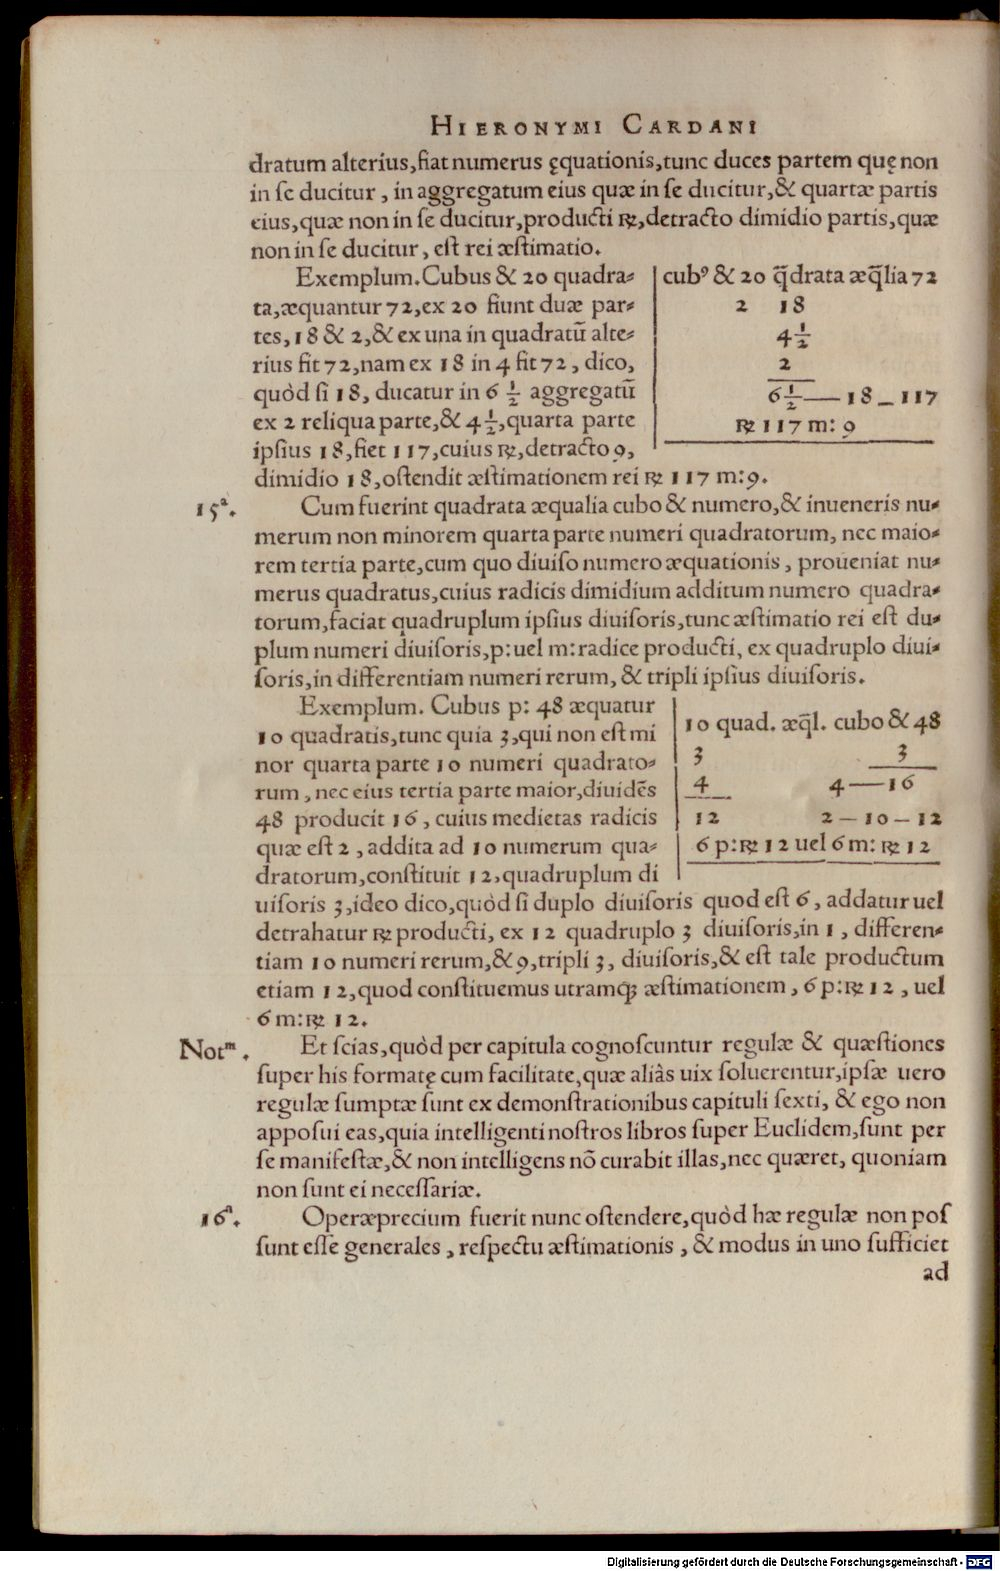 HIERONYMI CARDANI
dratum alterius, fiat numerus ęquationis, tunc duces partem quę non
in se ducitur, in aggregatum eius quæ in se ducitur, & quartæ partis
eius, quæ non in se ducitur, producti ℞, detracto dimidio partis, quæ
non in se ducitur, est rei æstimatio.
Exemplum. Cubus & 20 quadra-
ta, æquantur 72, ex 20 fiunt duæ par-
tes, 18 & 2, & ex una in quadratū alte-
rius fit 72, nam ex 18 in 4 fit 72, dico,
quòd si 18, ducatur in 6 ½ aggregatū
ex 2 reliqua parte, & 4 ½, quarta parte
ipsius 18, fiet 117, cuius ℞, detracto 9,
cubꝰ & 20 q̃drata æq̃lia 72
2 18
4 ½
2
6 ½ — 18 — 117
℞ 117 m: 9
dimidio 18, ostendit æstimationem rei ℞ 117 m: 9.
15ª.
Cum fuerint quadrata æqualia cubo & numero, & inueneris nu-
merum non minorem quarta parte numeri quadratorum, nec maio-
rem tertia parte, cum quo diuiso numero æquationis, proueniat nu-
merus quadratus, cuius radicis dimidium additum numero quadra-
torum, faciat quadruplum ipsius diuisoris, tunc æstimatio rei est du-
plum numeri diuisoris, p: uel m: radice producti, ex quadruplo diui-
soris, in differentiam numeri rerum, & tripli ipsius diuisoris.
Exemplum. Cubus p: 48 æquatur
10 quadratis, tunc quia 3, qui non est mi
nor quarta parte 10 numeri quadrato-
rum, nec eius tertia parte maior, diuidēs
48 producit 16, cuius medietas radicis
quæ est 2, addita ad 10 numerum qua-
dratorum, constituit 12, quadruplum di
10 quad. æq̃l. cubo & 48
3 3
4 4 — 16
12 2 — 10 — 12
6 p: ℞ 12 uel 6 m: ℞ 12
uisoris 3, ideo dico, quòd si duplo diuisoris quod est 6, addatur uel
detrahatur ℞ producti, ex 12 quadruplo 3 diuisoris, in 1, differen-
tiam 10 numeri rerum, & 9, tripli 3, diuisoris, & est tale productum
etiam 12, quod constituemus utramqꝫ æstimationem, 6 p: ℞ 12, uel
6 m: ℞ 12.
Notᵐ.
Et scias, quòd per capitula cognoscuntur regulæ & quæstiones
super his formatę cum facilitate, quæ aliâs uix soluerentur, ipsæ uero
regulæ sumptæ sunt ex demonstrationibus capituli sexti, & ego non
apposui eas, quia intelligenti nostros libros super Euclidem, sunt per
se manifestæ, & non intelligens nō curabit illas, nec quæret, quoniam
non sunt ei necessariæ.
16ª.
Operæprecium fuerit nunc ostendere, quòd hæ regulæ non pos
sunt esse generales, respectu æstimationis, & modus in uno sufficiet
ad
Digitalisierung gefördert durch die Deutsche Forschungsgemeinschaft - DFG